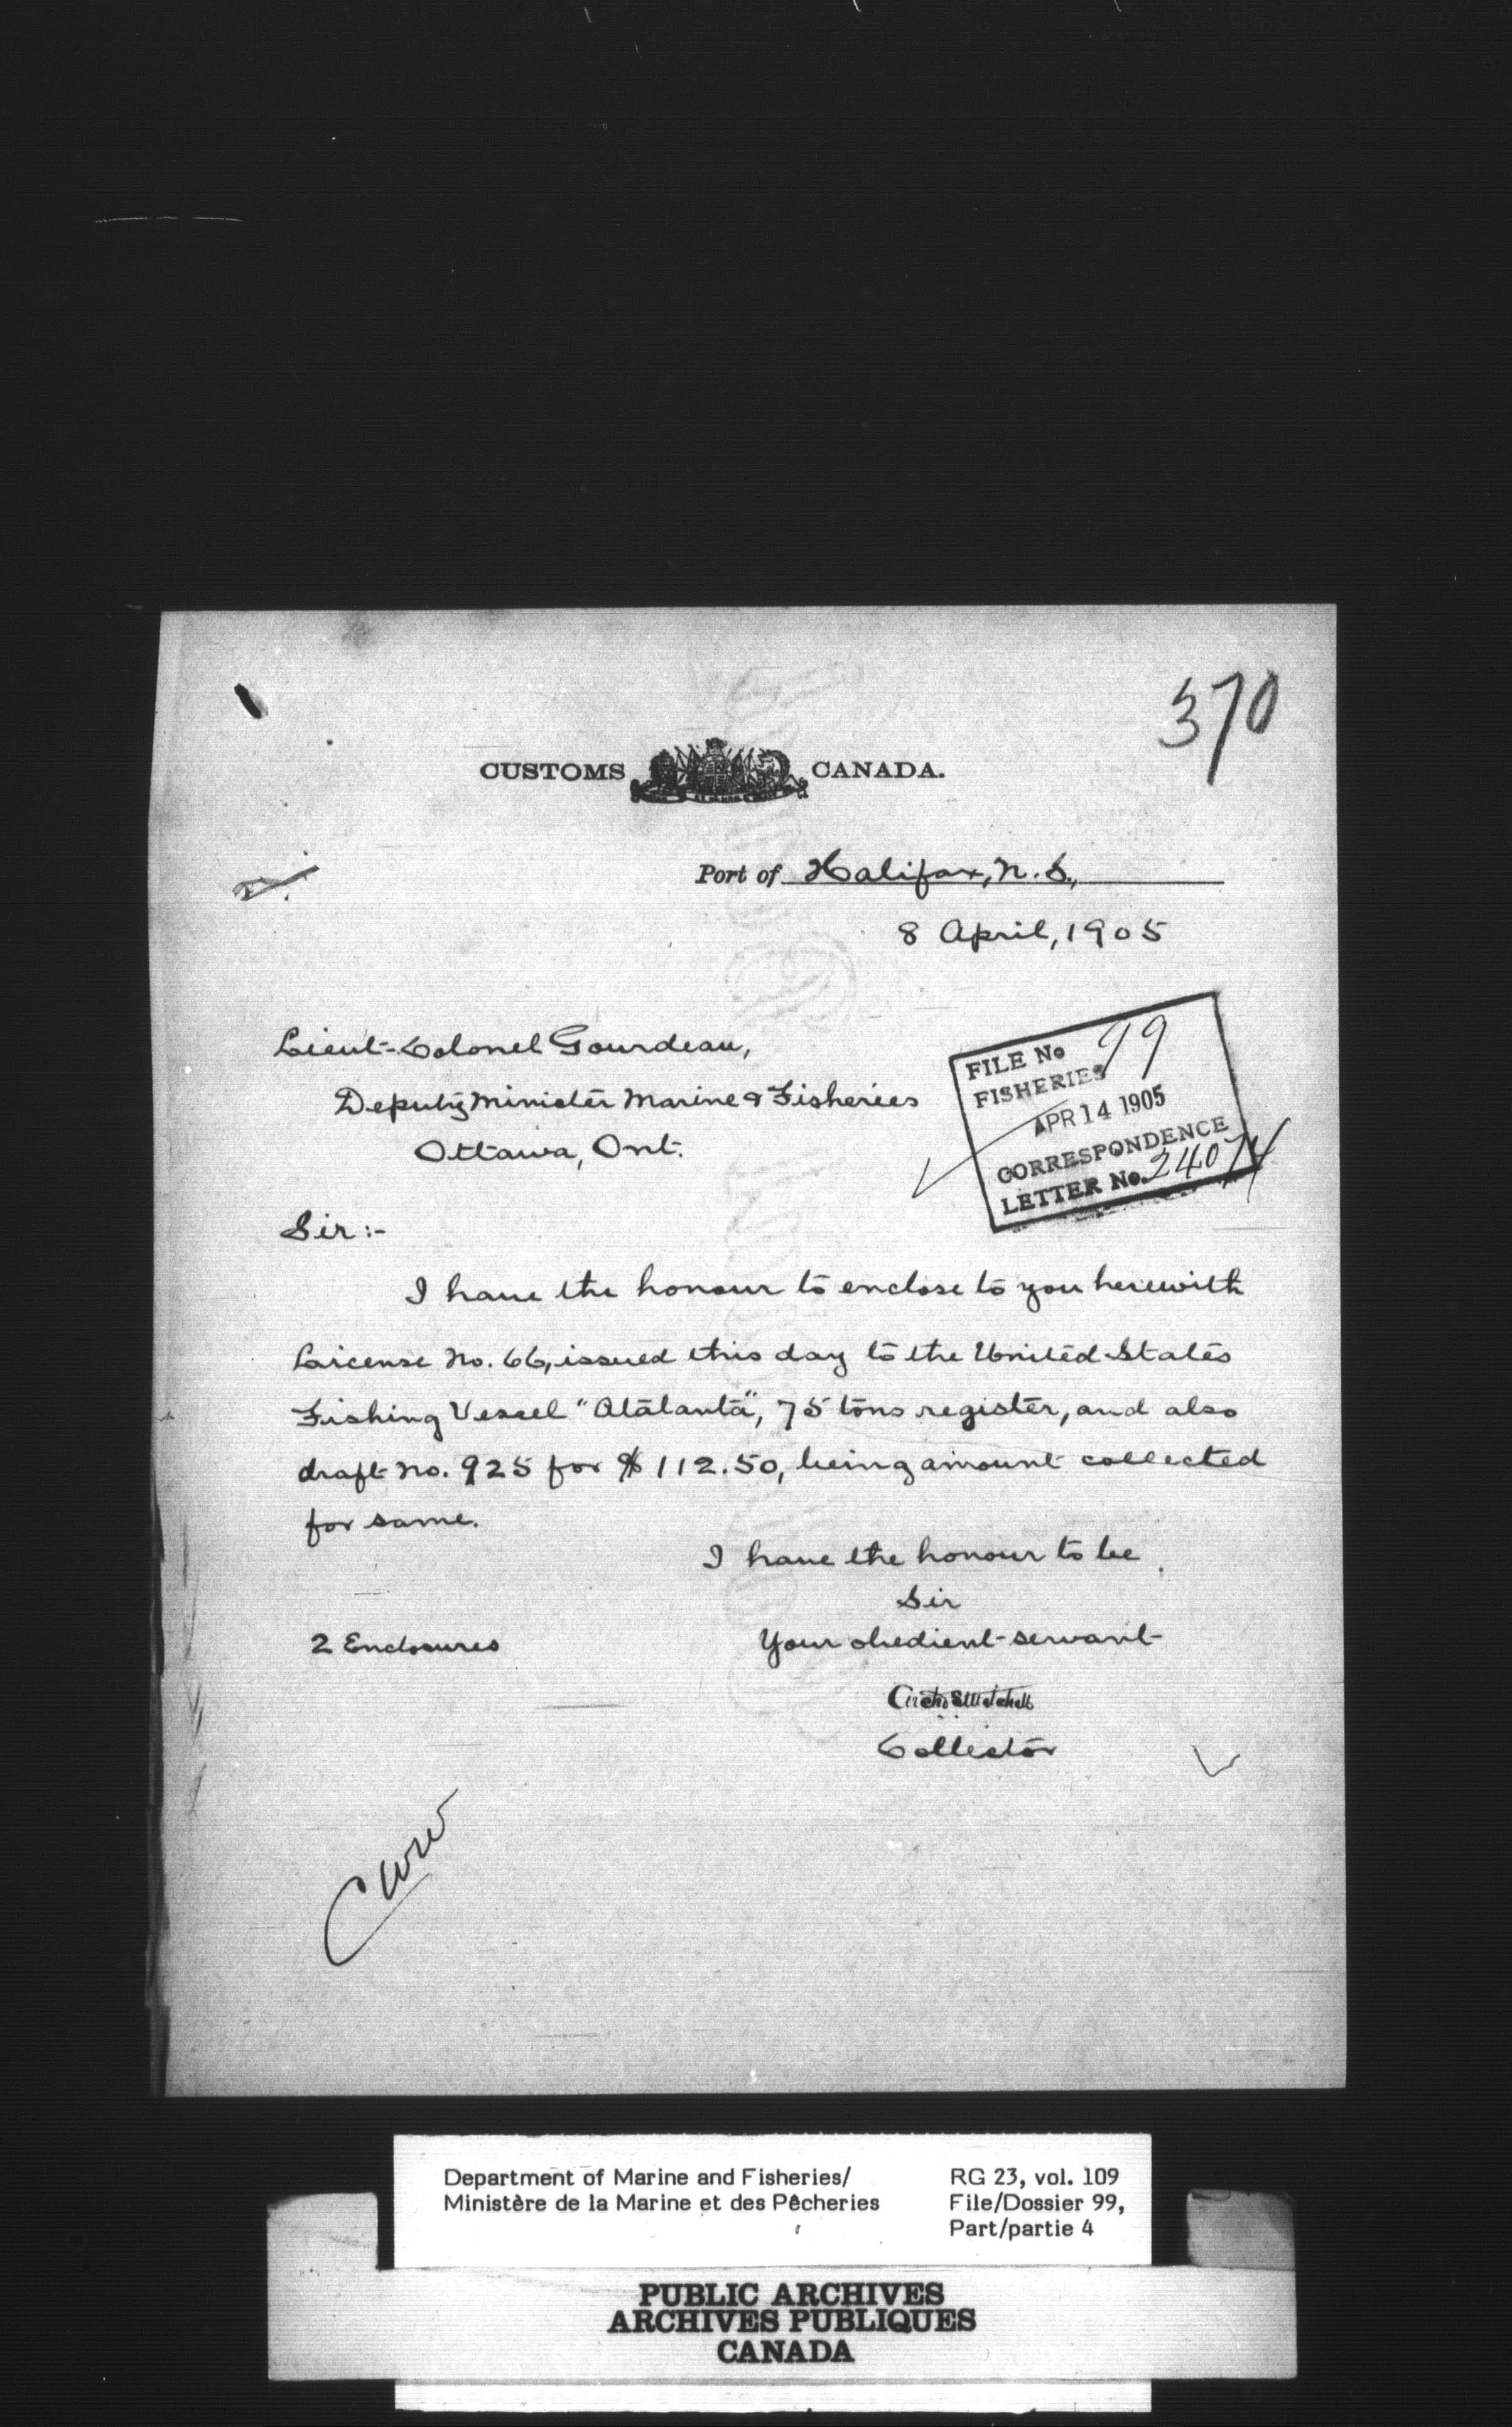 370
CUSTOMS CANADA.
Port of Halifax, N.S.,
8 April, 1905
Lieut-Colonel Gourdeau,
Deputy Minister Marine & Fisheries
Ottawa, Ont.
FILE No 99
FISHERIES
APR 14 1905
CORRESPONDENCE
LETTER No. 24074
Sir:-
I have the honour to enclose to you herewith
License No. 66, issued this day to the United States
Fishing Vessel "Atalanta", 75 tons register, and also
draft no. 925 for $112.50, being amount collected
for same.
I have the honour to be
Sir
2 Enclosures
Your obedient servant
Collector
Department of Marine and Fisheries/
Ministère de la Marine et des Pêcheries
RG 23, vol. 109
File/Dossier 99,
Part/partie 4
PUBLIC ARCHIVES
ARCHIVES PUBLIQUES
CANADA